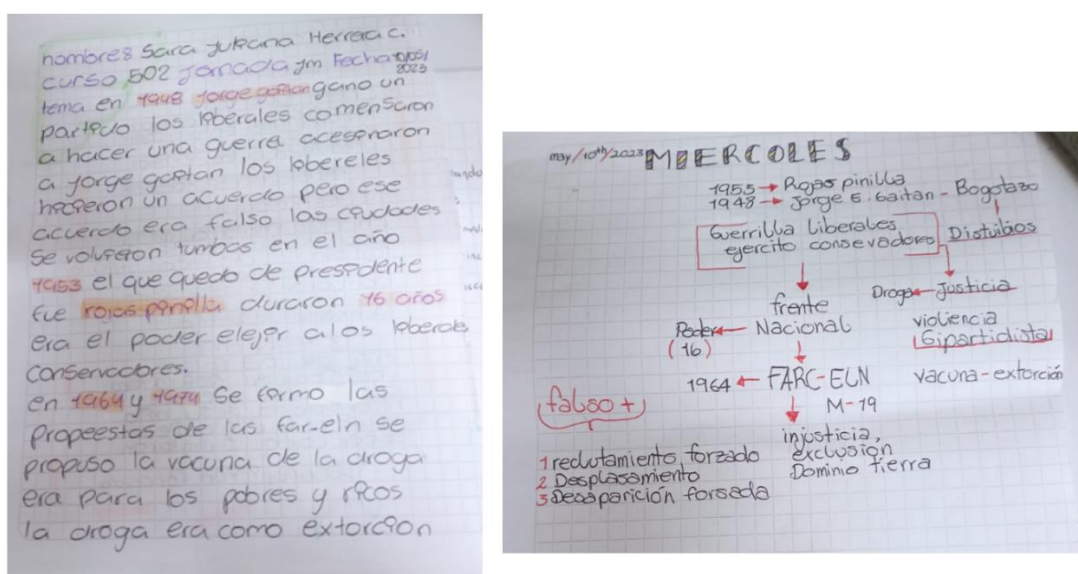 nombres Sara Juliana Herrera C.
curso 502 Jornada Jm Fecha 10/05/
2023
tema en 1948 Jorge gaitan gano un
partido los liberales comensaron
a hacer una guerra acesinaron
a Jorge gaitan los libereles
hicieron un acuerdo pero ese
acuerdo era falso las ciudades
se volvieron tumbas en el año
1953 el que quedo de presidente
fue rojas pinilla duraron 16 años
era el poder elejir a los liberales
conservadores.
en 1964 y 1974 se formo las
propeestas de las far-eln se
propuso la vacuna de la droga
era para los pobres y ricos
la droga era como extorcion
may/10th/2023 MIERCOLES
1953 → Rojas pinilla
1948 → Jorge E. Gaitan - Bogotazo
Guerrilla Liberales
ejercito consevadores Distuibios
frente Droga ← Justicia
Poder ← Nacional violiencia
(16) bipartidista
1964 ← FARC-ELN vacuna-extorción
M-19
falso +
injusticia,
1 reclutamiento forzado exclusion
2 Desplasamiento Dominio tierra
3 Desaparición forsada